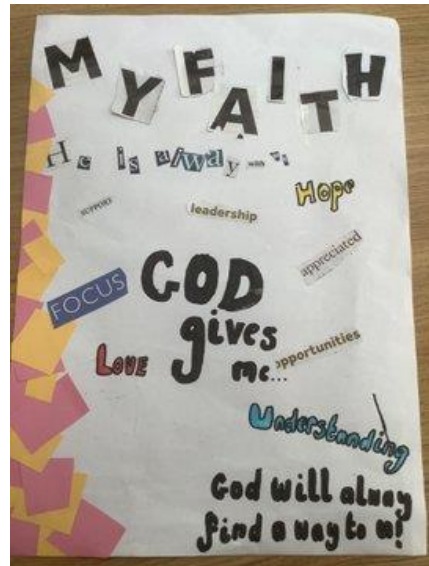 MY FAITH
He is alway
Hope
SUPPORT
leadership
appreciated
FOCUS
GOD
gives
me...
opportunities
LOVE
Understanding
God will alway
find a way to